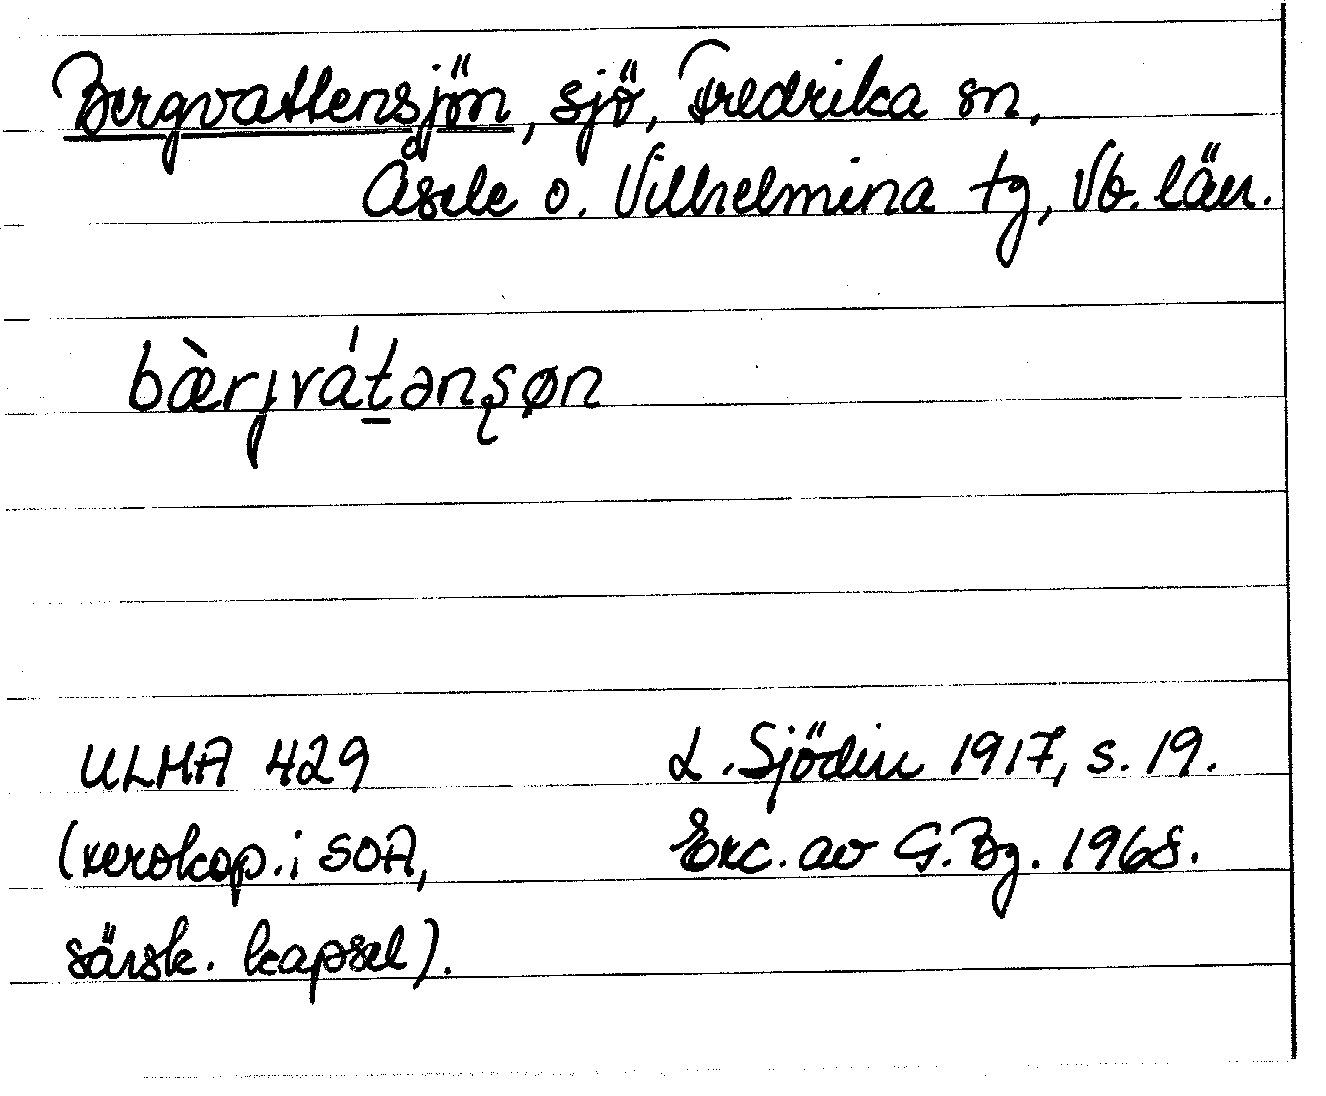 Bergvattensjön, sjö, Fredrika sn,
Åsele o. Vilhelmina tg, Vb. län.
bæ̀rjvát̲ənʂøn
ULMA 429
(xerokop. i SOA,
särsk. kapsel).
L. Sjödin 1917, s. 19.
Exc. av G. Bg. 1968.